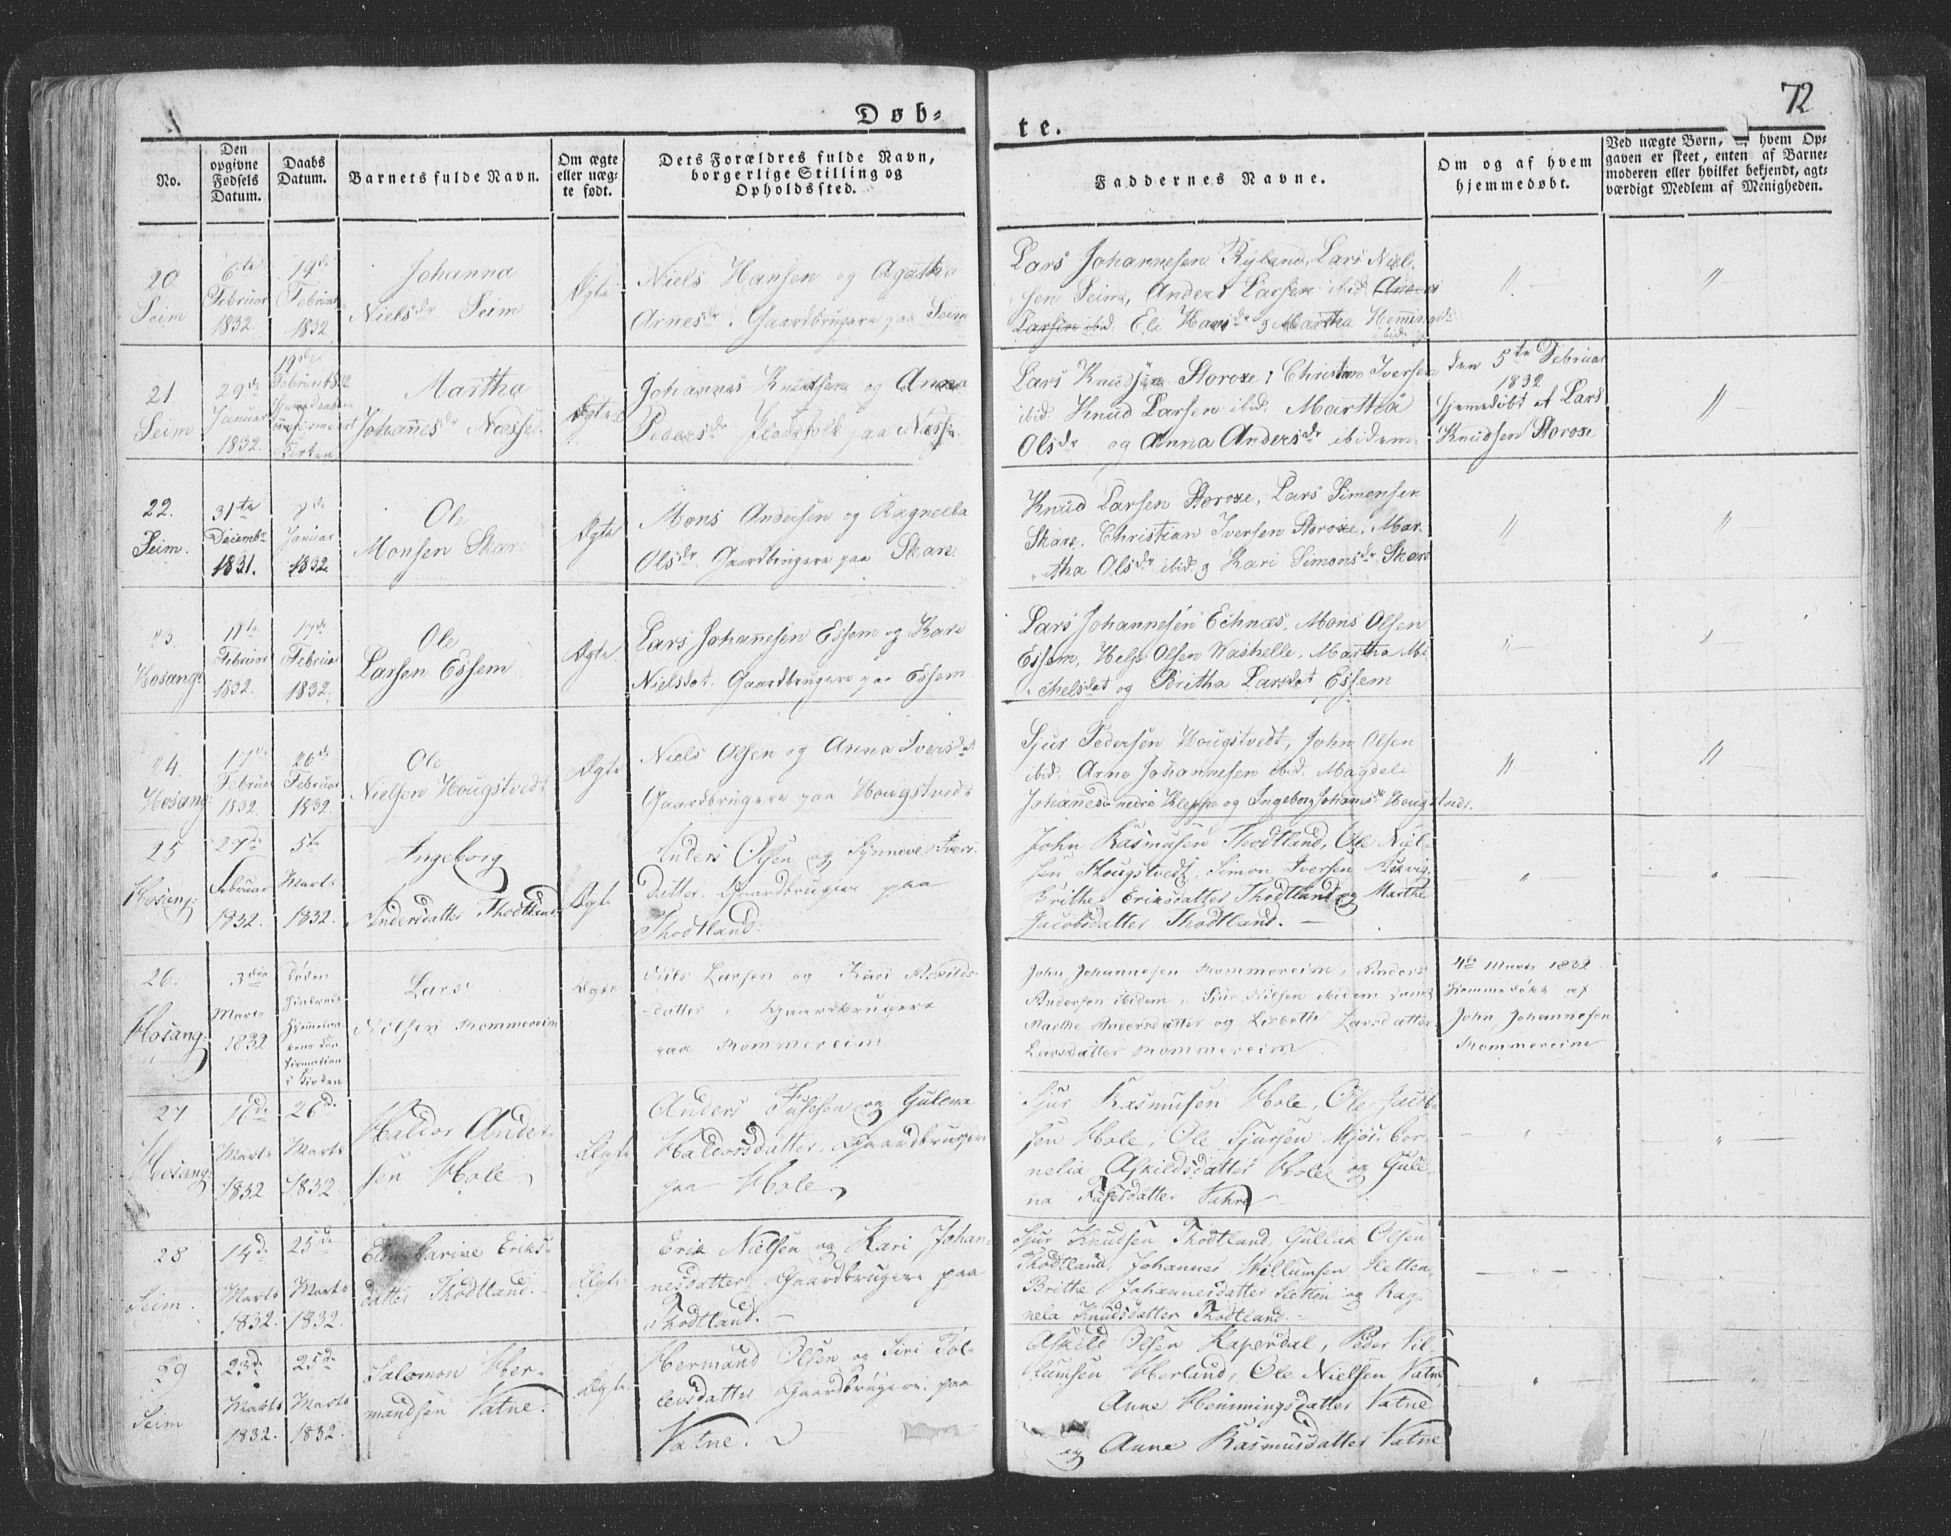 72
Døb-
te.
No.
Den
opgivne
Fødsels
Datum.
Daabs
Datum.
Barnets fulde Navn.
Om ægte
eller uæg-
te født.
Dets Forældres fulde Navn,
borgerlige Stilling og
Opholdssted.
Faddernes Navne.
Om og af hvem
hjemmedøbt.
Ved uægte Børn, hvem Op-
gaven er skeet, enten af Barne-
moderen eller hvilket bekjendt, agt-
værdigt Medlem af Menigheden.
20
Seim
6te
Februar
1832
19de
Februar
1832
Johanna
Nielsdr Seim
Ægte
Niels Hansen og Agatha
Arnesdr. Gaardbrugere paa Seim
Lars Johannesen Ryland, Lars Niel-
sen Seim, Anders Larsen ibid. Anders
Larsen ibid. Eli Hansdr og Martha Hemingsdr
ibid.
"
"
21
Seim
29de
Januar
1832
19de
Februar 1832
Kirken
Martha
Johannesdr Næsse
Ægte
Johannes Knudsen og Anna
Pedersdr paa Næsse
Lars Knudsen Storoxe, Christian Iversen
ibid. Knud Larsen ibid. Martha
Olsdr og Anna Andersdr ibidem
den 5te Februar
1832
hjemedøbt af Lars
Knudsen Storoxe
"
22.
Seim.
31te
Decembr
1831.
8de
Januar
1832
Ole
Monsen Skare
Ægte
Mons Andersen og Ragnelba
Olsdr. Gaardbrugere paa Skare
Knud Larsen Storoxe, Lars Simonsen
Skare, Christian Iversen Storoxe, Mar-
tha Olsdr ibid. og Kari Simonsdr Skare
"
"
23.
Hosang:
11te
Februar
1832.
17de
Februar
1832.
Ole
Larsen Essem
Ægte
Lars Johannesen Essem og Kari
Nielsdat. Gaardbrugere paa Essem
Lars Johannesen Echnæs, Mons Olsen
Essem, Helge Olsen Washelle, Martha Mi-
chelsdat og Britha Larsdat Essem
"
"
24.
Hosang:
17de
Februar
1832.
26de
Februar
1832.
Ole
Nielsen Hougstvedt
Ægte
Niels Olsen og Anna Iversdat
Gaardbrugere paa Hougstvedt
Sjur Pedersen Hougstvedt, John Olsen
ibid. Arne Johannesen ibid. Magdeli
Johannesdr nedre Kleppe og Ingeborg Johannesdr Hougstvedt.
"
"
25
Hosang:
27de
Februar
1832.
5te
Marts
1832.
Ingeborg
Andersdatter Thodtland
Ægte
Anders Olsen og Synneve Ivers-
datter. Gaardbrugere paa
Thodtland.
John Rasmusen Thodtland, Ole Niel-
sen Hougstvedt, Simon Iversen Askvig,
Brithe Eriksdatter Thodtland og Marthe
Jacobsdatter Thodtland.
"
"
26.
Hosang:
3die
Marts
1832
Døden
Lars
Nilsen Rommereim
Ægte
Nils Larsen og Kari
datter, Gaardbrugere
paa Rommereim
John Johannesen Rommereim, Anders
Andersen ibidem, Sjur Nilsen ibidem samt
Marthe Andersdatter og Lisbette Larsdatter
Larsdatter Rommereim
4de Marts 1832
Hjemmedøbt af
John Johannesen
Rommereim
27
Hosang:
Marts
1832
26de
Marts
1832.
Haldor Ander-
sen Hole
Ægte
Anders Fusesen og Gulena
Haldorsdatter, Gaardbrugere
paa Hole
Sjur Rasmusen Hole, Ole Jacob-
sen Hole, Ole Sjursen Mjøs, Cor-
nelia Askildsdatter Hole og Gule-
na Vatne
"
"
28
Seim.
14de
Marts
1832.
25de
Marts
1832.
Karine Eriks-
datter Thodtland.
Ægte
Erik Nielsen og Kari Johan-
nesdatter, Gaardbrugere paa
Thodtland.
Sjur Knudsen Thodtland, Gullak Olsen
Thodtland, Johannes Willumsen Sletten,
Brithe Johannesdatter Sletten og Rag-
nela Knudsdatter Thodtland.
"
"
29
Seim
23de
Marts
1832.
25de
Marts
1832.
Salomon Her-
mandsen Vatne.
Ægte
Hermand Olsen og Siri Tol-
levsdatter, Gaardbrugere paa
Vatne.
Askild Olsen Kaperdal, Peder Vil-
lumsen Herland, Ole Nielsen Vatne
Anne Hemmingsdatter Vatne
og Anne Rasmusdatter Vatne
"
"